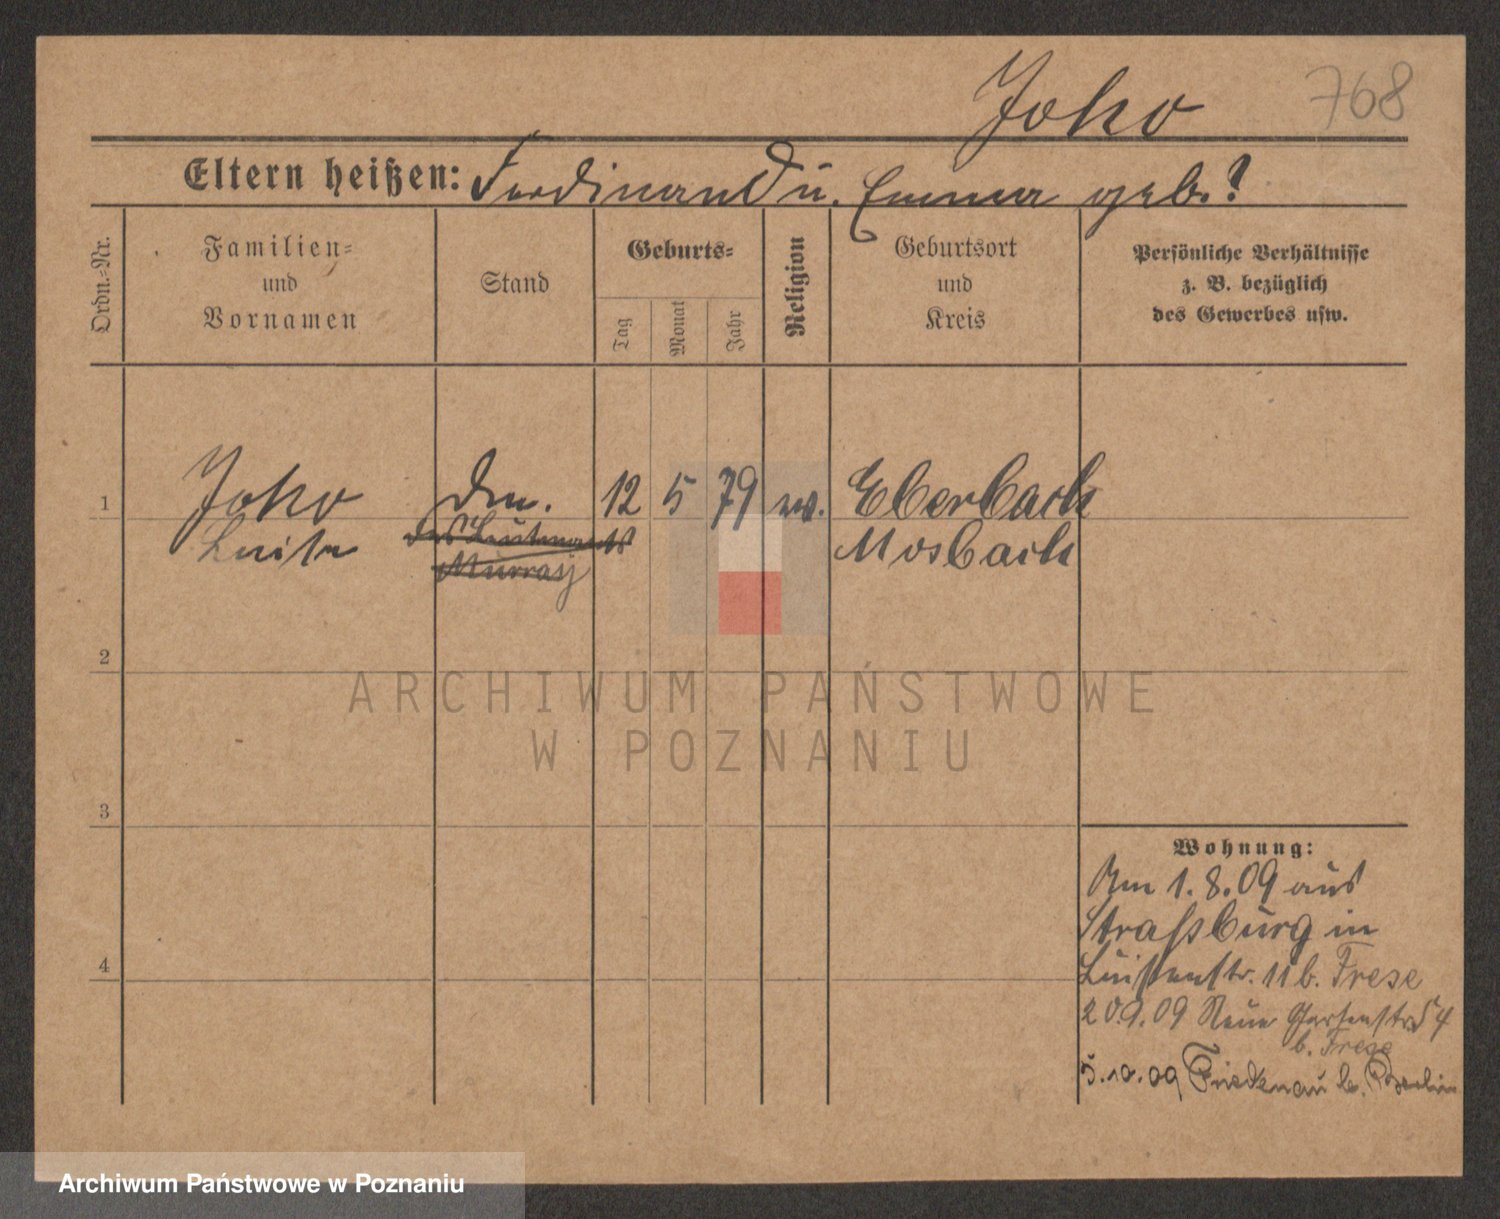 Joho 768
Eltern heißen: Ferdinand u. Emma geb. ?
Ordn.-Nr.
Familien-
und
Vornamen
Stand
Geburts-
Tag
Monat
Jahr
Religion
Geburtsort
und
Kreis
Persönliche Verhältnisse
z. B. bezüglich
des Gewerbes usw.
1
Joho
Luise
des Leutnants
Murray
12 5 79
Eberbach
Mosbach
2
ARCHIWUM PAŃSTWOWE
W POZNANIU
3
4
Wohnung:
Am 1.8.09 aus
Straßburg in
Luisenstr. 11 b. Frese
20.9.09 Neue Gartenstr. 54
b. Frese
5.10.09 Friedenau b. Berlin
Archiwum Państwowe w Poznaniu